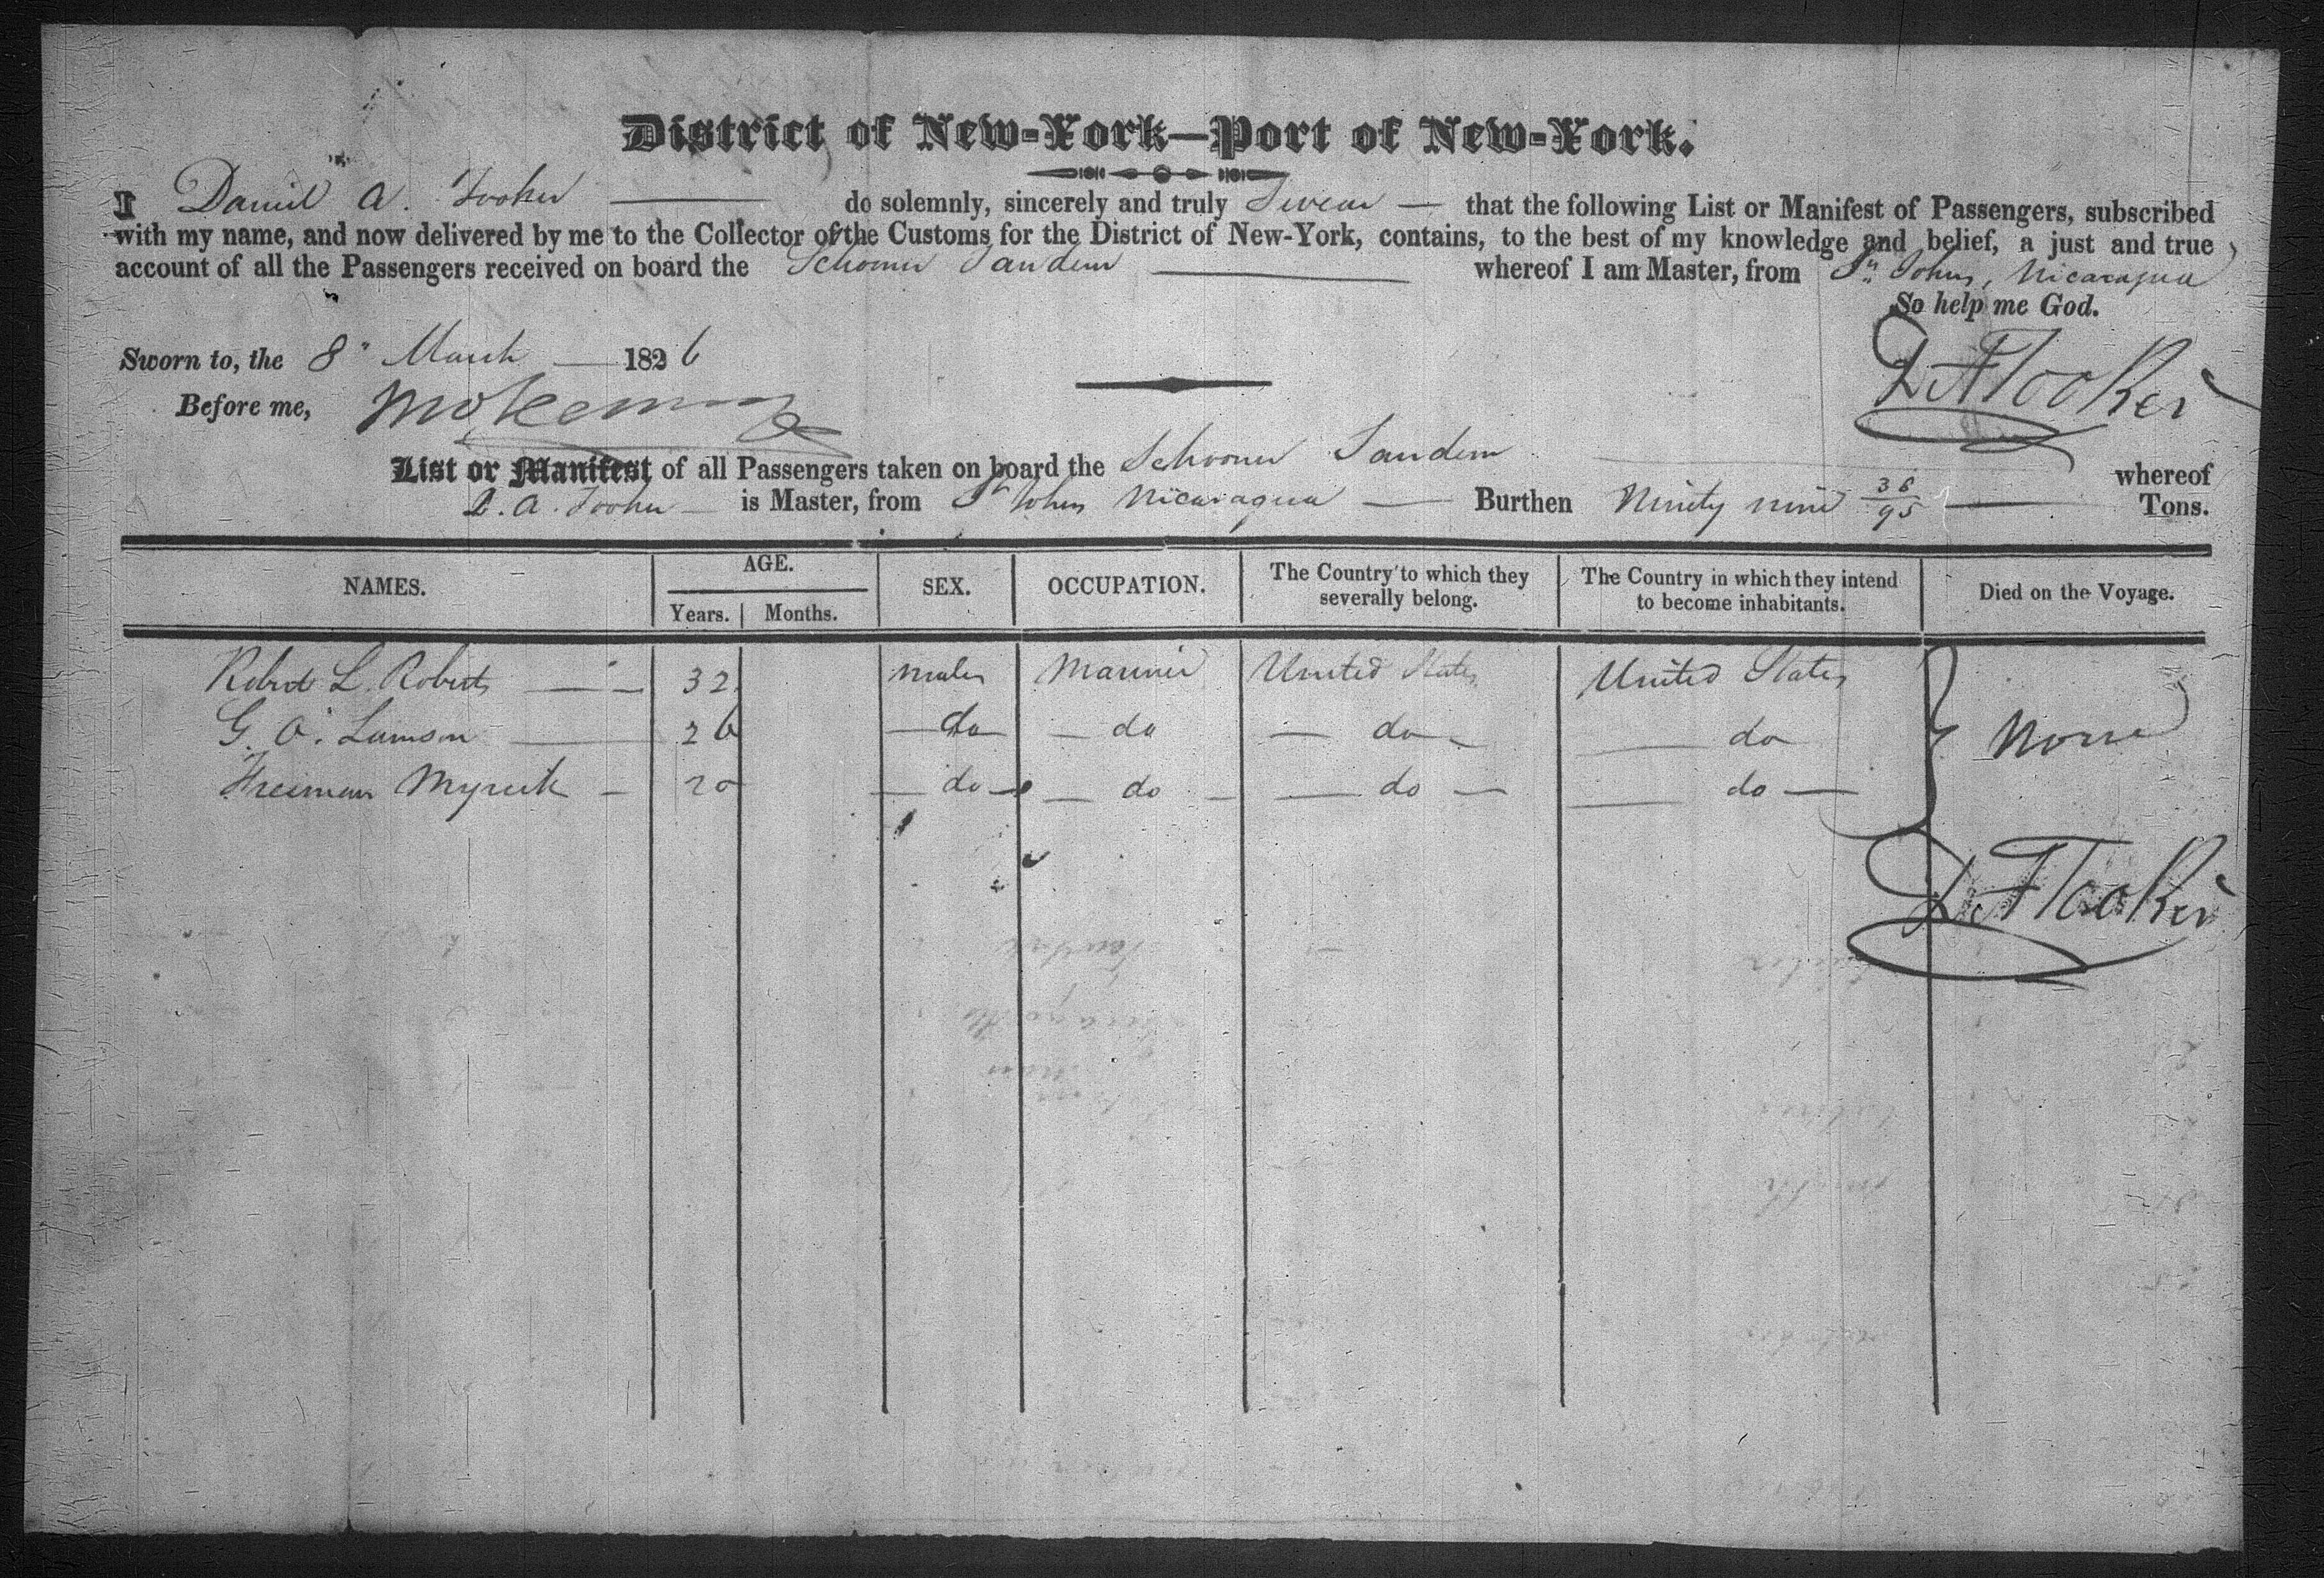 District of New-York—Port of New-York.
I Daniel A. Tooker do solemnly, sincerely and truly Swear — that the following List or Manifest of Passengers, subscribed
with my name, and now delivered by me to the Collector of the Customs for the District of New-York, contains, to the best of my knowledge and belief, a just and true
account of all the Passengers received on board the Schooner Tandem whereof I am Master, from St Johns, Nicaragua
So help me God.
Sworn to, the 8" March — 1826
D A Tooker
Before me,
List or Manifest of all Passengers taken on board the Schooner Tandem whereof
D. A. Tooker — is Master, from St Johns Nicaragua — Burthen Ninety nine 36/95 — Tons.
NAMES. AGE. SEX. OCCUPATION. The Country to which they severally belong. The Country in which they intend to become inhabitants. Died on the Voyage.
Years. Months.
Robert L. Roberts — 32 males Mariner United States United States
G. A. Lamson — 26 — do — — do — do — — do None
Freeman Myrick — 20 — do — — do — — do — — do —
D A Tooker